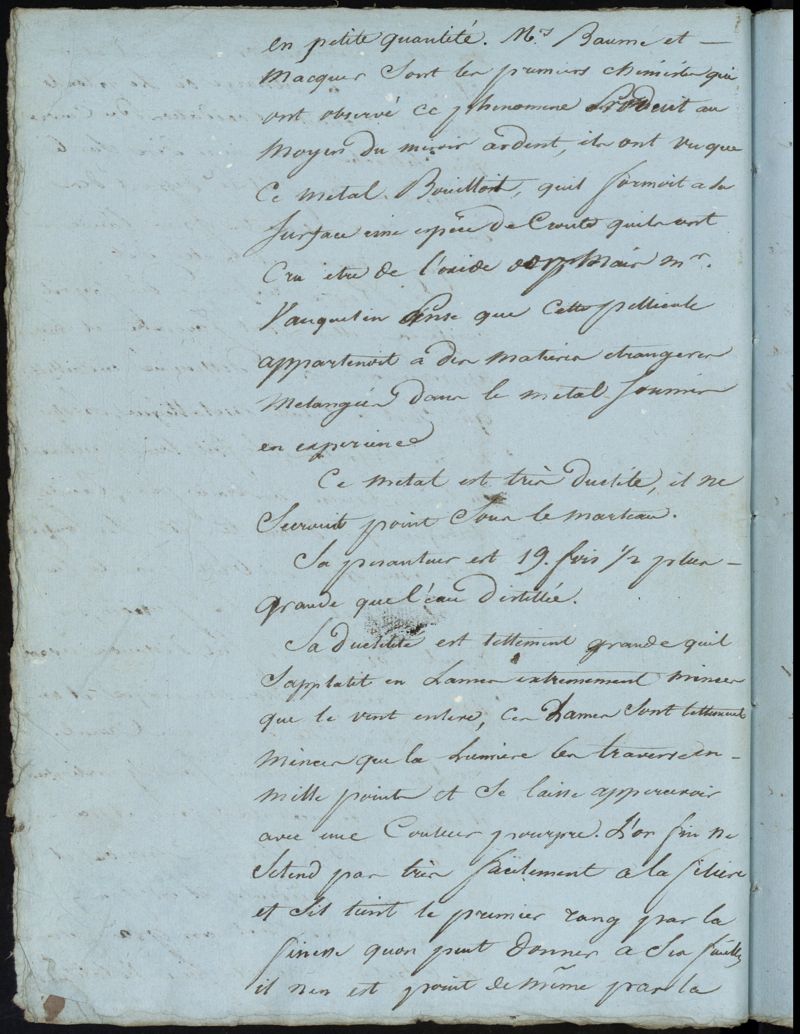 en petite quantité. Mrs Baumé et —
Macquer sont les premiers chimistes qui
ont observé ce phenomene produit au
moyen du miroir ardent, ils ont vu que
ce metal Bouilloit, quil formoit a sa
surface une espèce de Croute quils ont
Cru etre de l'oxide mais mr.
Vauquelin pense que cette pellicule
appartenoit à des matieres etrangeres
melangées dans le metal soumis
en experience
Ce metal est très ductile, il ne
Secrouit point sous le marteau.
Sa pesanteur est 19. fois 1/2 plus —
grande que l'eau distillée.
Sa ductilité est tellement grande quil
sapplatit en Lames extremement minces
que le vent enleve, ces Lames sont tellement
minces que la Lumiere les traverse en —
mille points et se laisse appercevoir
avec une Couleur pourpre. L'or fin ne
Setend pas très facilement a la filiere
et sil tient le premier rang par la
finesse quon peut donner a ses feuilles
il nen est point de même par la